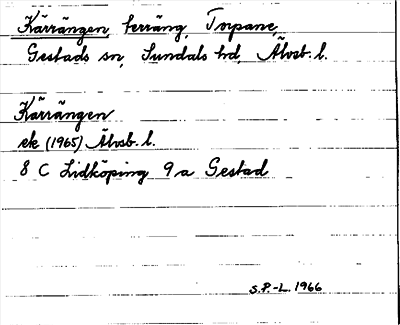 Kärrängen, terräng, Torpane,
Gestads sn, Sundals hd, Älvsb. l.
Kärrängen
ek (1965) Älvsb. l.
8 C Lidköping 9 a Gestad
S.P.-L. 1966